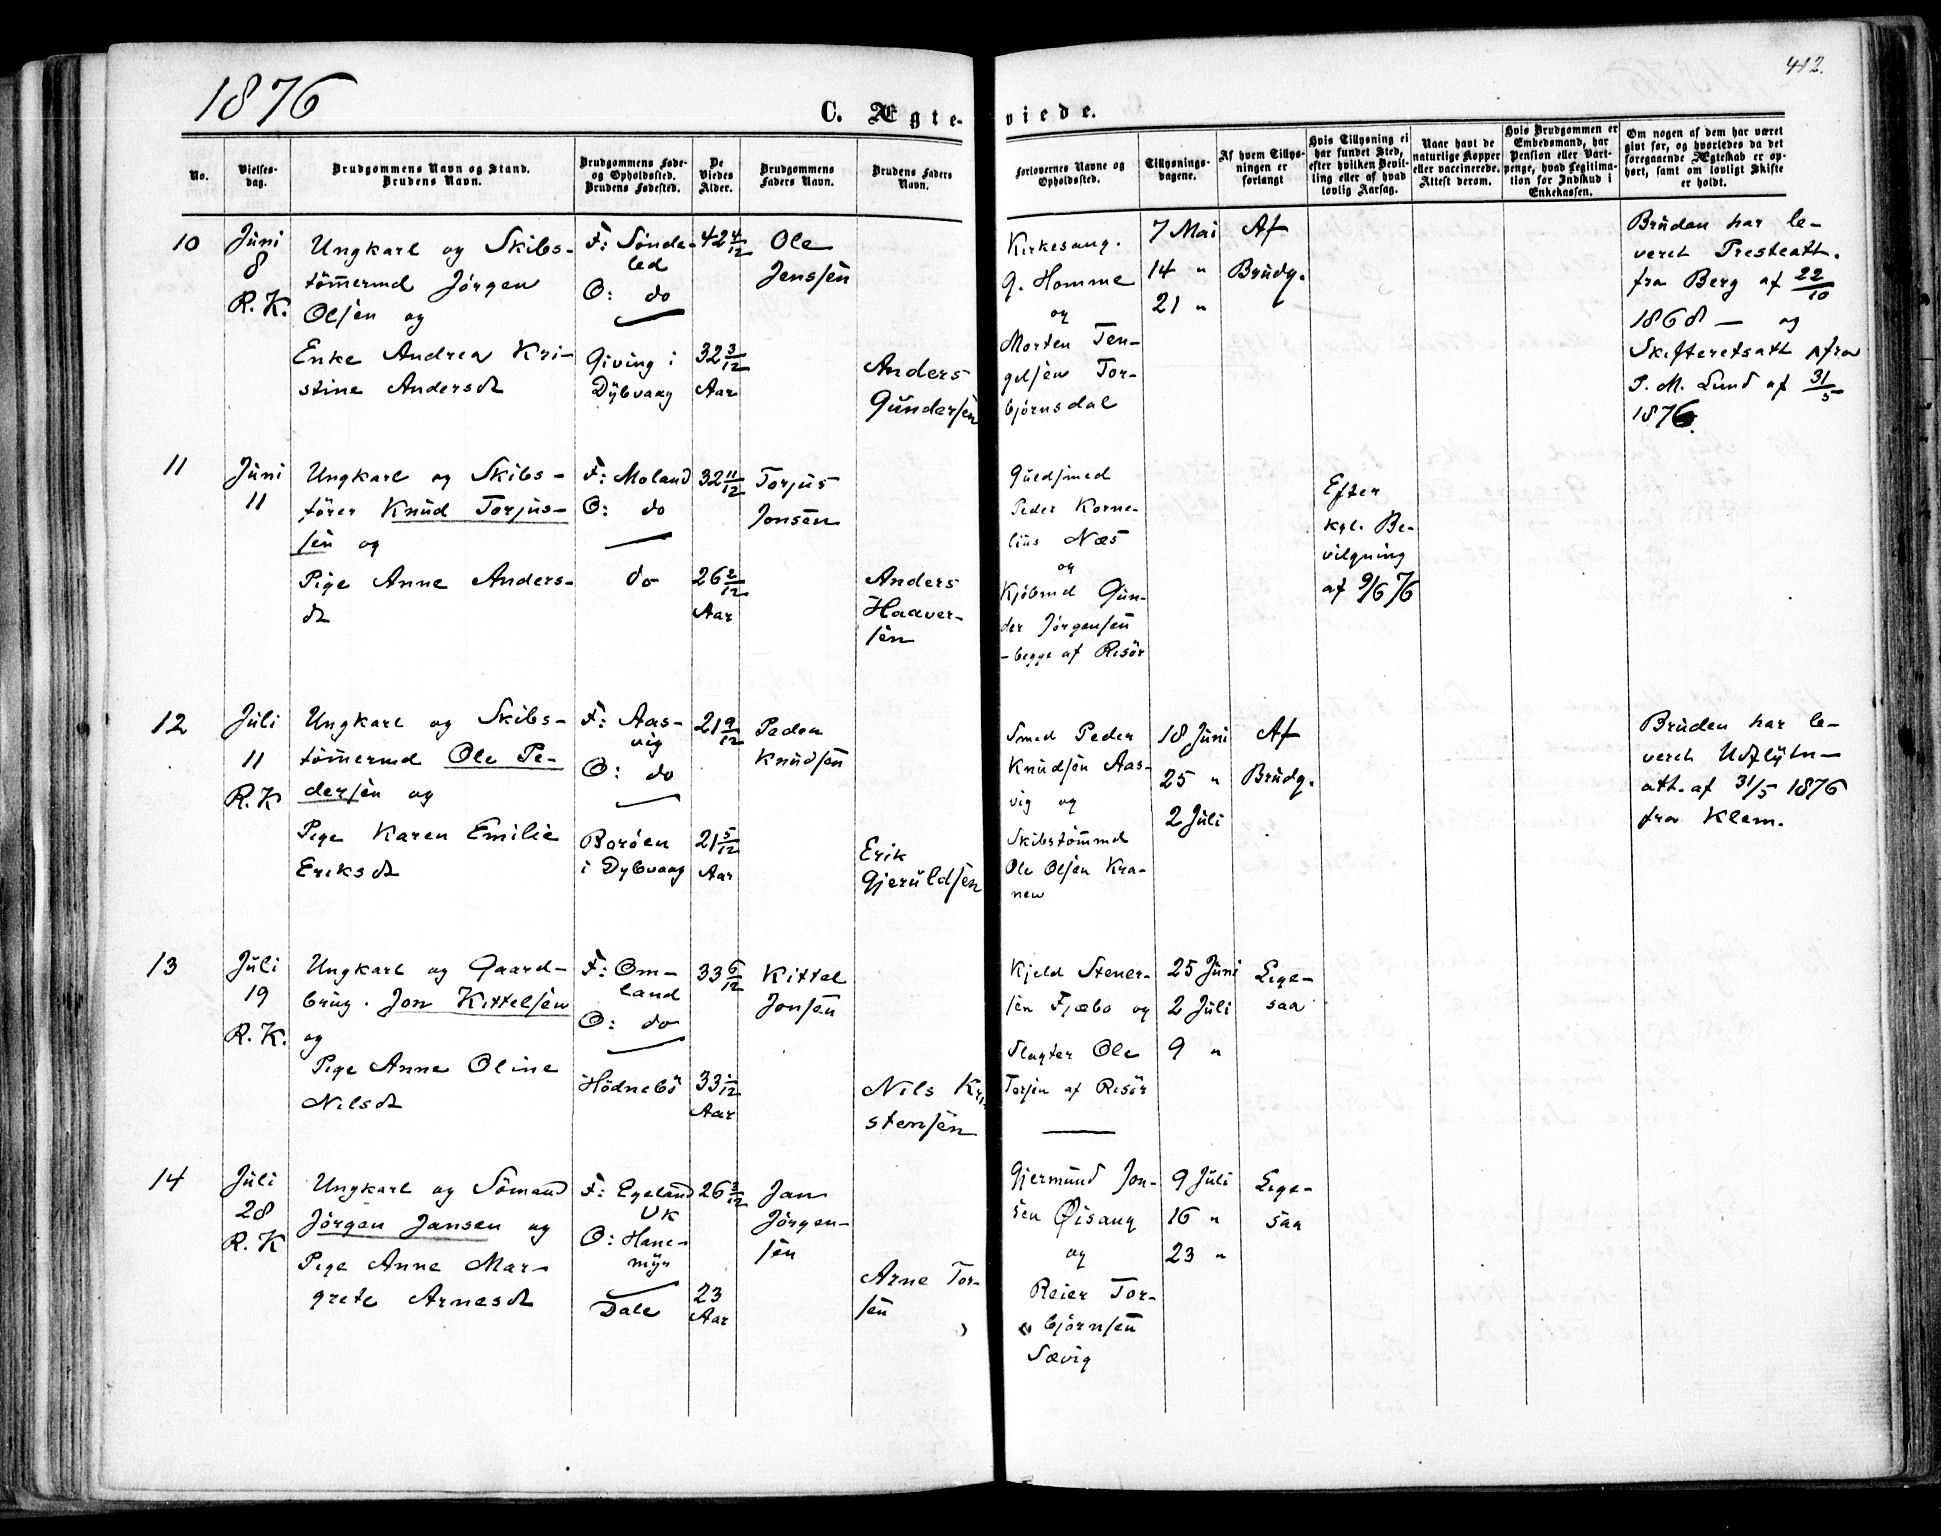 1876
412.
C. Ægte-
viede.
No.
Vielses-
dag.
Brudgommens Navn og Stand.
Brudens Navn.
Brudgommens Føde-
og Opholdssted.
Brudens Fødested.
De
Viedes
Alder.
Brudgommens
Faders Navn.
Brudens Faders
Navn.
Forlovernes Navne og
Opholdssted.
Tillysnings-
dagene.
Af hvem Tillys-
ningen er
forlangt
Hvis Tillysning ei
har fundet Sted,
efter hvilken Bevil-
ling eller af hvad
lovlig Aarsag.
Naar havt de
naturlige Kopper
eller vaccinerede.
Attest derom.
Hvis Brudgommen er
Embedsmand, har
Pension eller Vart-
penge, hvad Legitima-
tion for Indskud i
Enkekassen.
Om nogen af dem har været
gift før, og hvorledes da det
foregaaende Ægteskab er op-
hørt, samt om lovligt Skifte
er holdt.
10
Juni
8
R. K.
Ungkarl og Skibs-
tømermd Jørgen
Olsen og
Enke Andrea Kri-
stine Andersdt
F: Sønde-
led
O: do
Giving i
Dybvaag
42 4/12
32 3/12
Aar
Ole
Jenssen
Anders
Gundersen
Kirkesang.
G. Homme
og
Morten Ten-
gelsen Tor-
bjørnsdal
7 Mai
14 "
21 "
Af
Brudg.
Bruden har le-
veret Presteatt.
fra Berg af 22/10
1868 — og
Skifteretsatt fra
P. M. Lund af 31/5
1876.
11
Juni
11
Ungkarl og Skibs-
fører Knud Torjus-
sen og
Pige Anne Anders-
dt
F: Moland
O: do
do
32 11/12
26 2/12
Aar
Torjus
Jonsen
Anders
Haaver-
sen
Guldsmed
Peder Korne-
lius Næs
og
Kjøbmd Gun-
der Jørgensen
- begge af Risør
Efter
kgl. Be-
vilgning
af 9/6 76
12
Juli
11
R. K
Ungkarl og Skibs-
tømermd Ole Pe-
dersen og
Pige Karen Emilie
Eriksdt
F: Aas-
vig
O: do
Borøen
i Dybvaag
21 9/12
21 5/12
Aar
Peder
Knudsen
Erik
Gjeruldsen
Smed Peder
Knudsen Aas-
vig og
Skibstømmd
Ole Olsen Kra-
nen
18 Juni
25 "
2 Juli
Af
Brudg.
Bruden har le-
veret Udflytn-
att. af 31/5 1876
fra Klem.
13
Juli
19
R. K.
Ungkarl og Gaard-
brug. Jon Kittelsen
og
Pige Anne Oline
Nilsdt
F: Om-
land
O: do
Hødnebø
33 6/12
33 1/12
Aar
Kittel
Jonsen
Nils Kri-
stensen
Kjeld Stener-
sen Fjæbo og
Slagter Ole
Torsen af Risør
25 Juni
2 Juli
9 "
Lige-
saa
14
Juli
28
R. K
Ungkarl og Sømand
Jørgen Jansen og
Pige Anne Mar-
grete Arnesdt
F: Egeland
VK
O: Hane-
myr
Dale
26 3/12
23
Aar
Jan
Jørgen-
sen
Arne Tor-
sen
Gjermund Jon-
sen Øisang
og
Reier Tor-
bjørnsen
Sævig
9 Juli
16 "
23 "
Lige-
saa